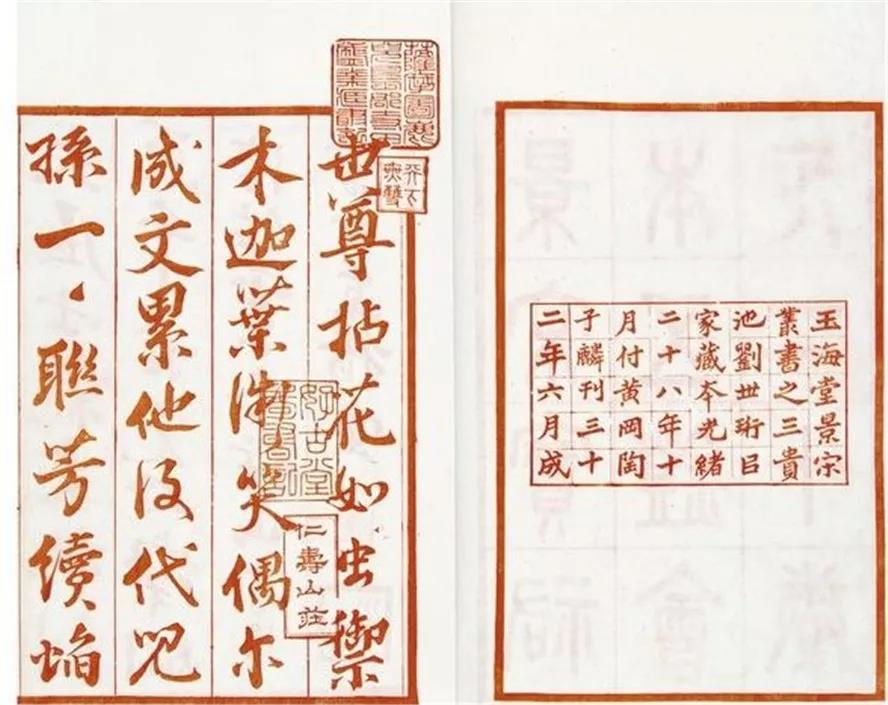 玉海堂景宋
叢書之三貴
池劉世珩㠯
家藏本光緒
二十八年十
月付黃岡陶
子麟刊三十
二年六月成
世尊拈花如虫禦
木迦葉微笑偶尔
成文累他後代兒
孫一、聯芳續焰
天下
無雙
好古堂
圖書記
仁壽山莊